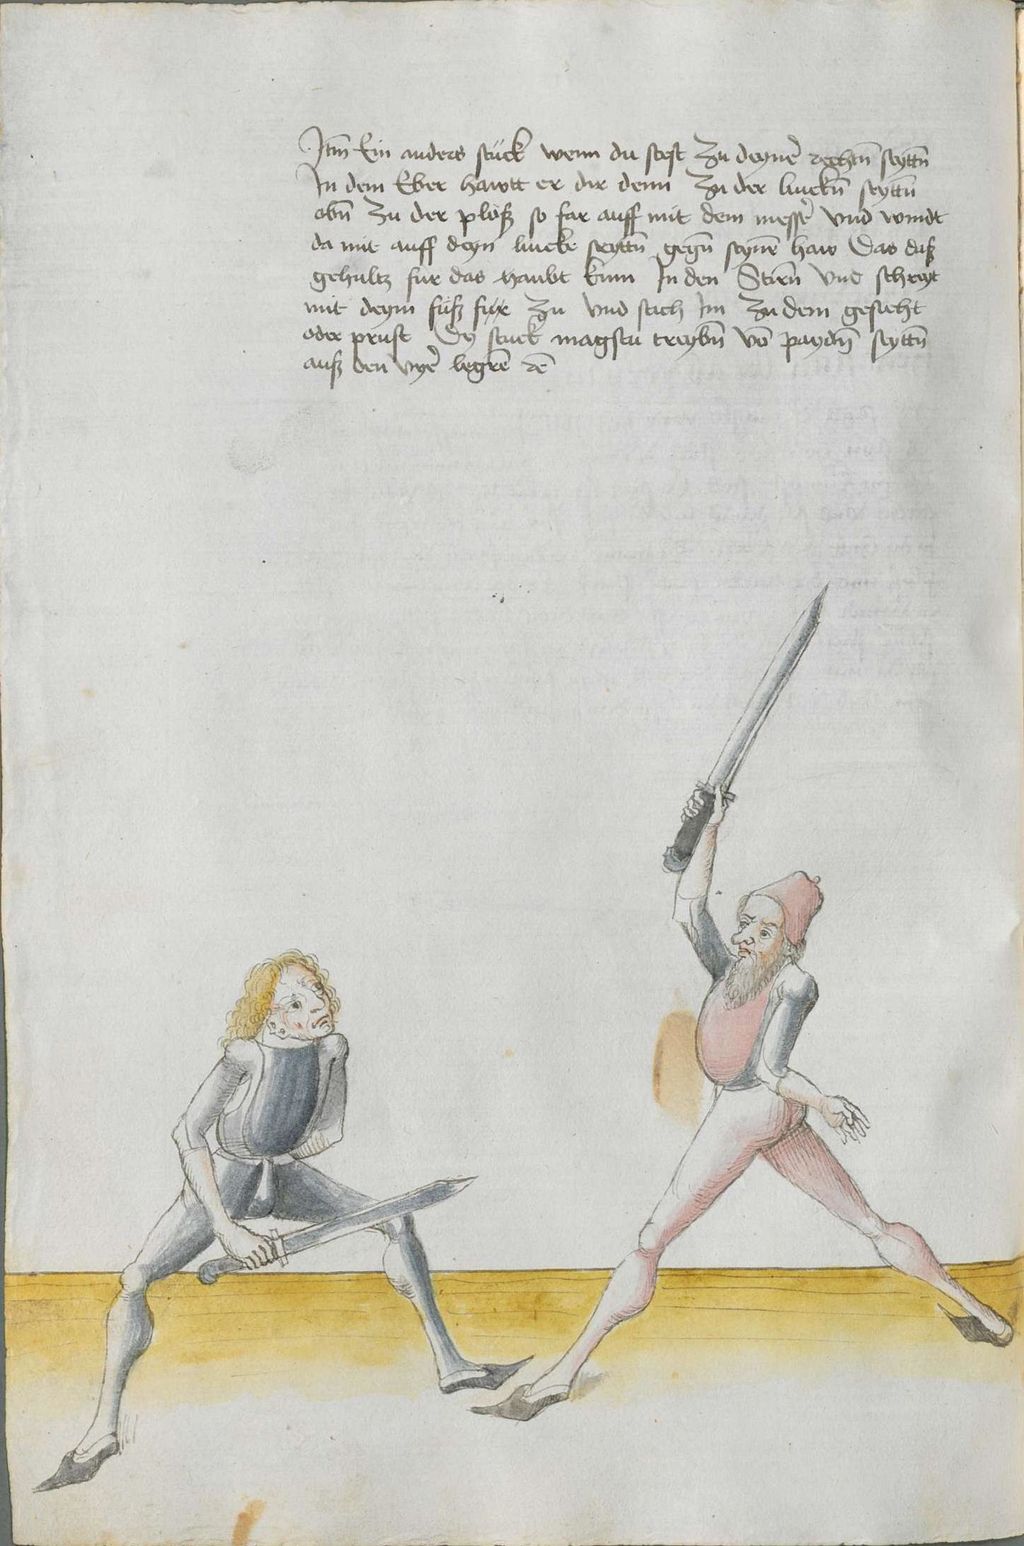 Itm̄ Ein anders stuck wenn du stest Zu deyner̄ rechtn̄ seyttn̄
In dem Eber hawtt er dir denn Zu der linckn̄ seyttn̄
obn̄ Zu der plöß so far auff mit dem messer̄ vnd windt
da mit auff deyn lincke seyttn̄ gegn̄ seynē haw Das daß
gehultz fur das haubt kum In den Stirn̄ vnd schreyt
mit deym füß Zu vnd stich Im Zu dem gesicht
oder prust Dy stuck magstu treybn̄ vō paydn̄ seyttn̄
auß den vyer̄ legrē